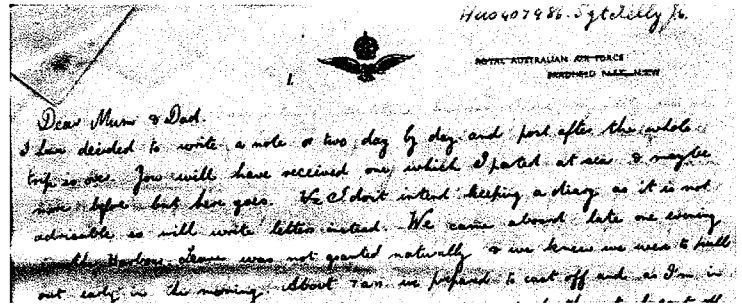 Aus407986. Sgt Kelly J.
ROYAL AUSTRALIAN AIR FORCE
BRADFIELD PARK, N.S.W
1.
Dear Mum & Dad.
I have decided to write a note or two day by day and post after the whole
trip is over. You will have received one which I posted at sea & maybe
more before but here goes. I don't intend keeping a diary as it is not
advisable so will write letters instead. We came aboard late one evening
in the Harbour. Leave was not granted naturally & we knew we were to pull
out early in the morning. About 7 am we prepared to cast off and as I'm in